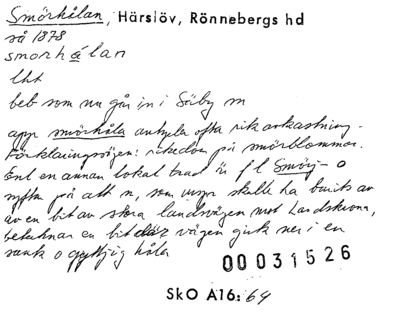 Smörhålan, Härslöv, Rönnebergs hd
så 1878
smorhålan
lht
beb som nu går in i Säby m
appr smörhåla antyder ofta rik avkastning.
Förklaringsvägen: rikedom på smörblommor.
Enl en annan lokal trad är fl Smörj- o
syftar på att n, som urspr skulle ha burits av
av en bit av stora landsvägen mot Landskrona,
betecknar en bit där vägen gick ner i en
sank o gyttjig håla
00031526
SkO A16: 64